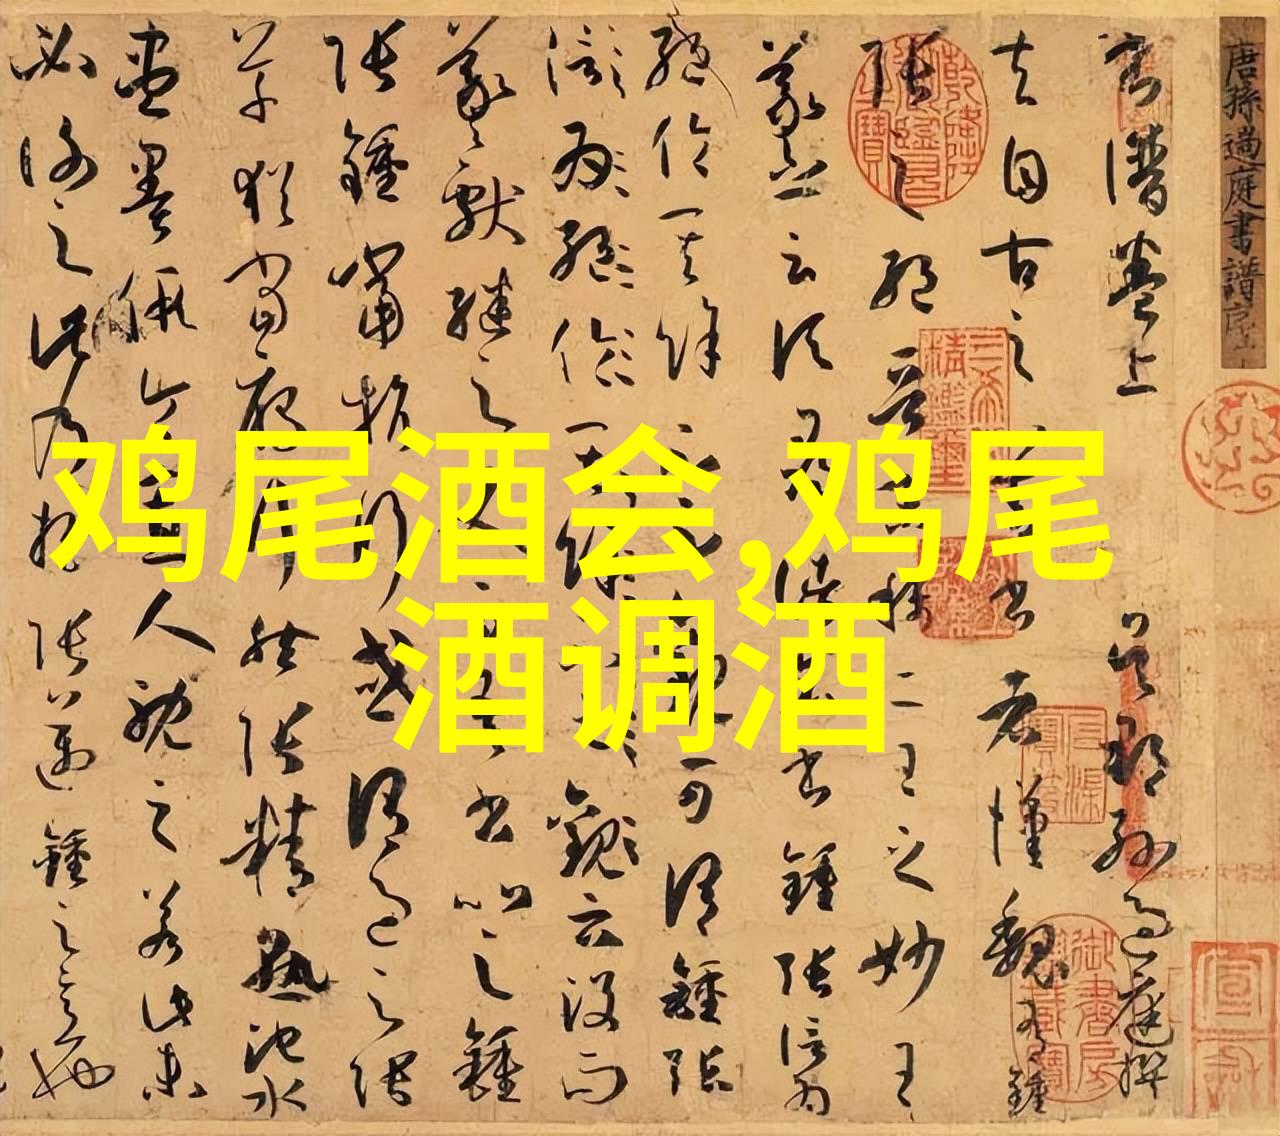 鸡尾酒会,鸡尾
酒调酒
唐孫過庭書譜序上
書譜卷上 吳郡孫過庭撰
夫自古之善書者漢魏有鍾
張之絕晉末稱二王之妙王
羲之云頃尋諸名書鍾張信為
絕倫其餘不足觀可謂鍾張
云沒而
羲獻繼之又云吾書比之鍾
張鍾當抗行或謂過之張
草猶當雁行然張精熟池水
盡墨假令寡人耽之若此未
必謝之此乃推張邁鍾之意也